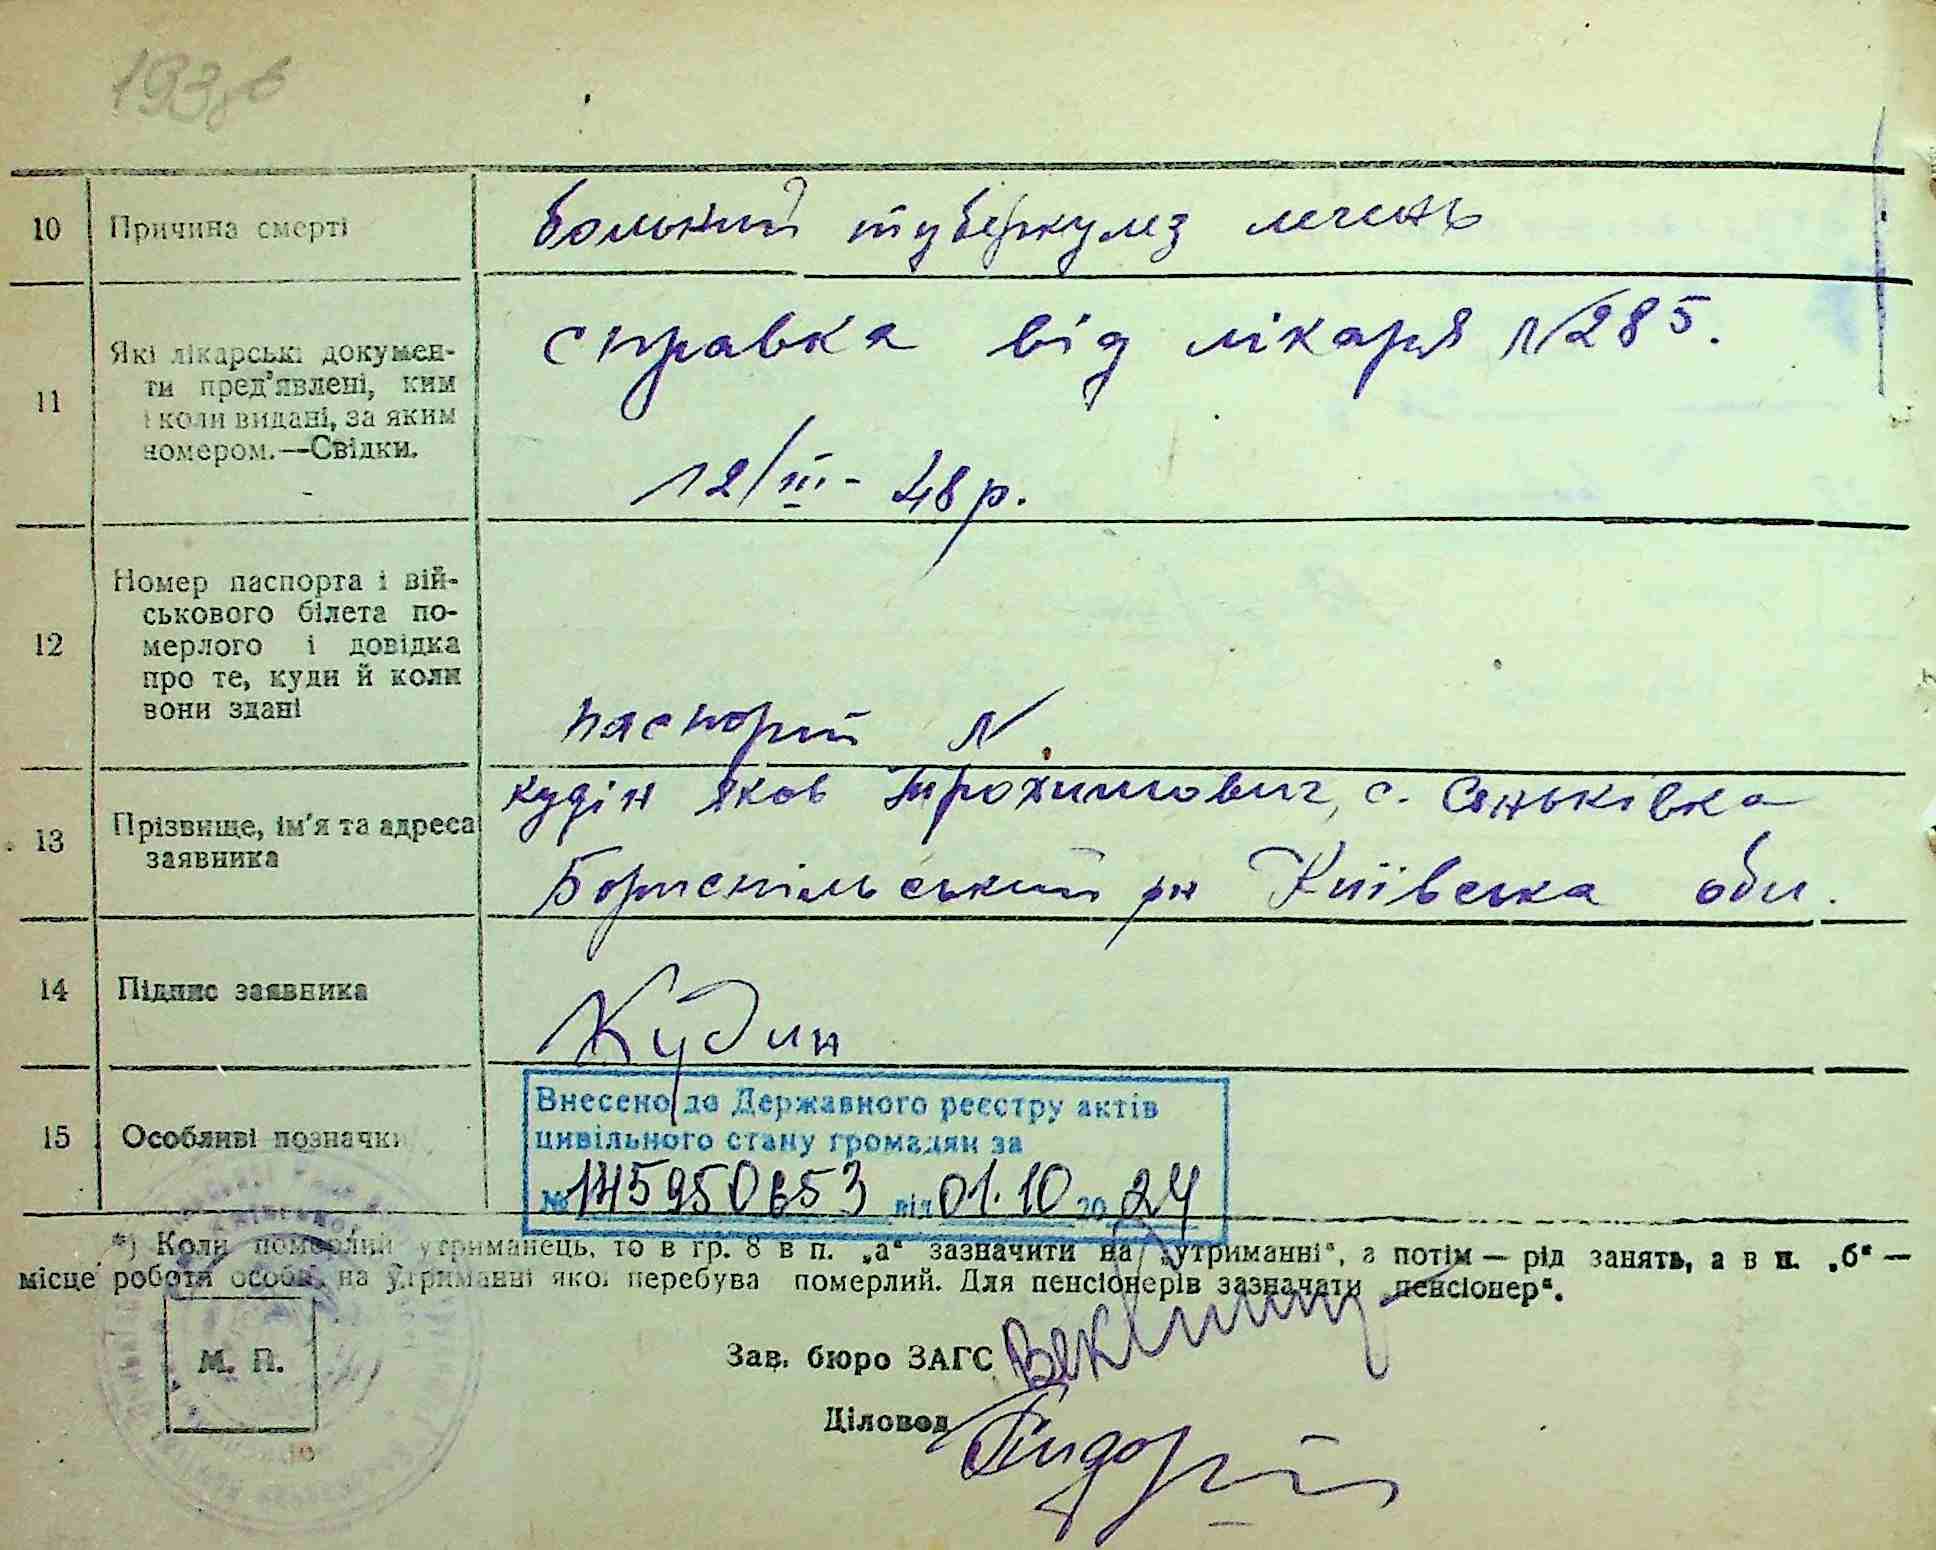 10 Причина смерти больний туберкулез легень
11 Які лікарські докумен-
ти пред'явлені, ким
і коли видані, за яким
номером.—Свідки.
справка від лікаря №285.
12/III- 48р.
12 Номер паспорта і вій-
ськового білета по-
мерлого і довідка
про те, куди й коли
вони здані
паспорт №
13 Прізвище, ім'я та адреса
заявника
кудін Яков Трохимович, с. Сеньківка
Бориспільський рн Київська обл.
14 Підпис заявника Кудин
15 Особливі позначки
Внесено до Державного реєстру актів
цивільного стану громадян за
№ від 01.10 20 24
*) Коли померлий утриманець, то в гр. 8 в п. „а“ зазначити на „утриманні“, а потім — рід занять, а в п. „б“ —
місце роботи особи, на утриманні якої перебува померлий. Для пенсіонерів зазначати „пенсіонер“.
М. П.
Зав. бюро ЗАГС
Діловод